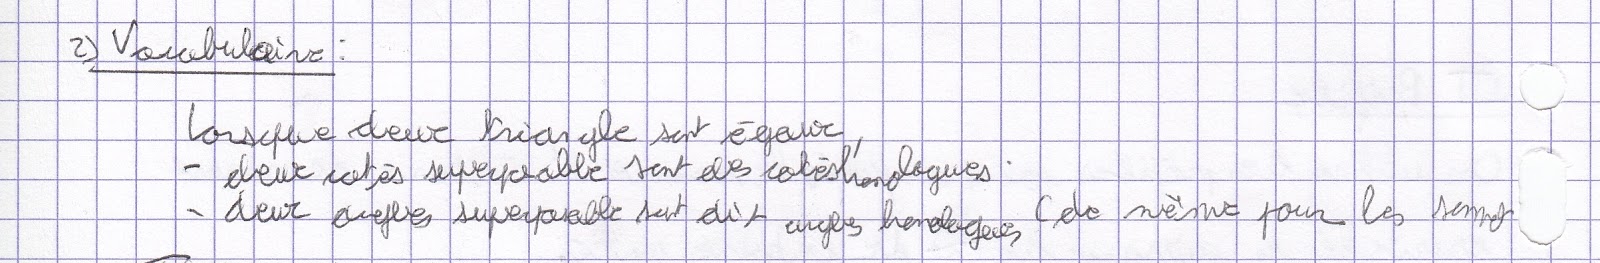 2) Vocabulaire :
Lorsque deux triangle sont égaux,
- deux cotés superposable sont des cotés homologues.
- deux angles superposable sont dit angles homologues (de même pour les sommet